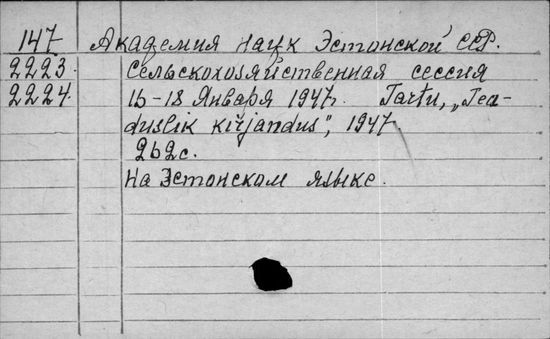 147 Академия наук Эстонской ССР.
2223. Сельскохозяйственная сессия
2224. 16-18 Января 1947г. Tartu, „Tea-
duslik kirjandus", 1947
262с.
На Эстонском языке.